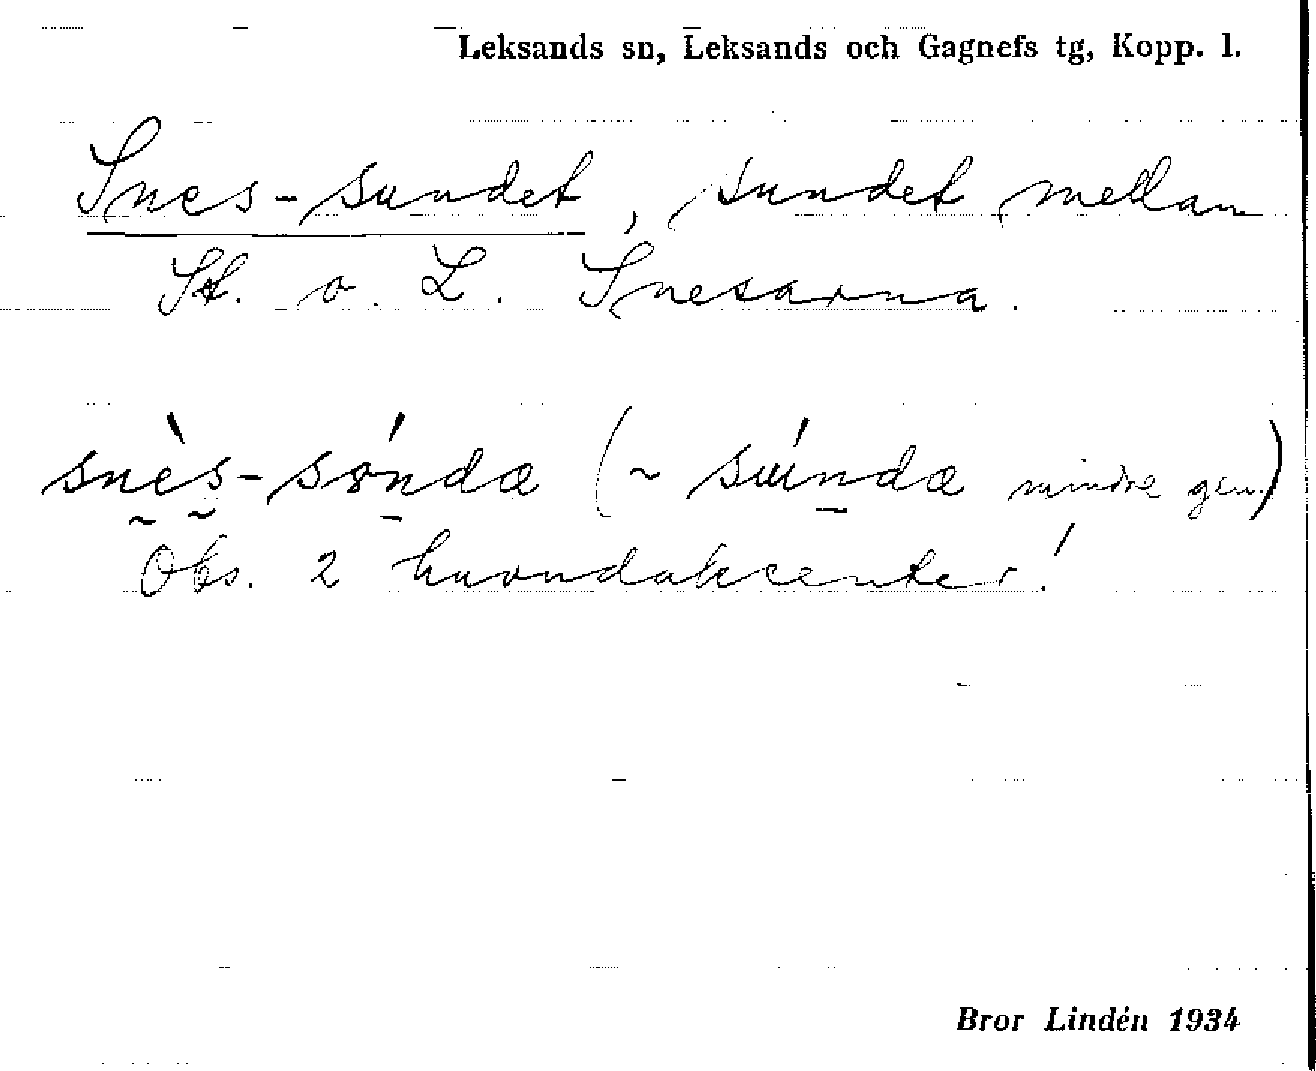 Leksands sn, Leksands och Gagnefs tg, Kopp. l.
Snes-sundet, sundet mellan
St. o. L. Snesarna.
snès-sónda (~ súnda mindre gen.)
Obs. 2 huvudakcenter!
Bror Lindén 1934